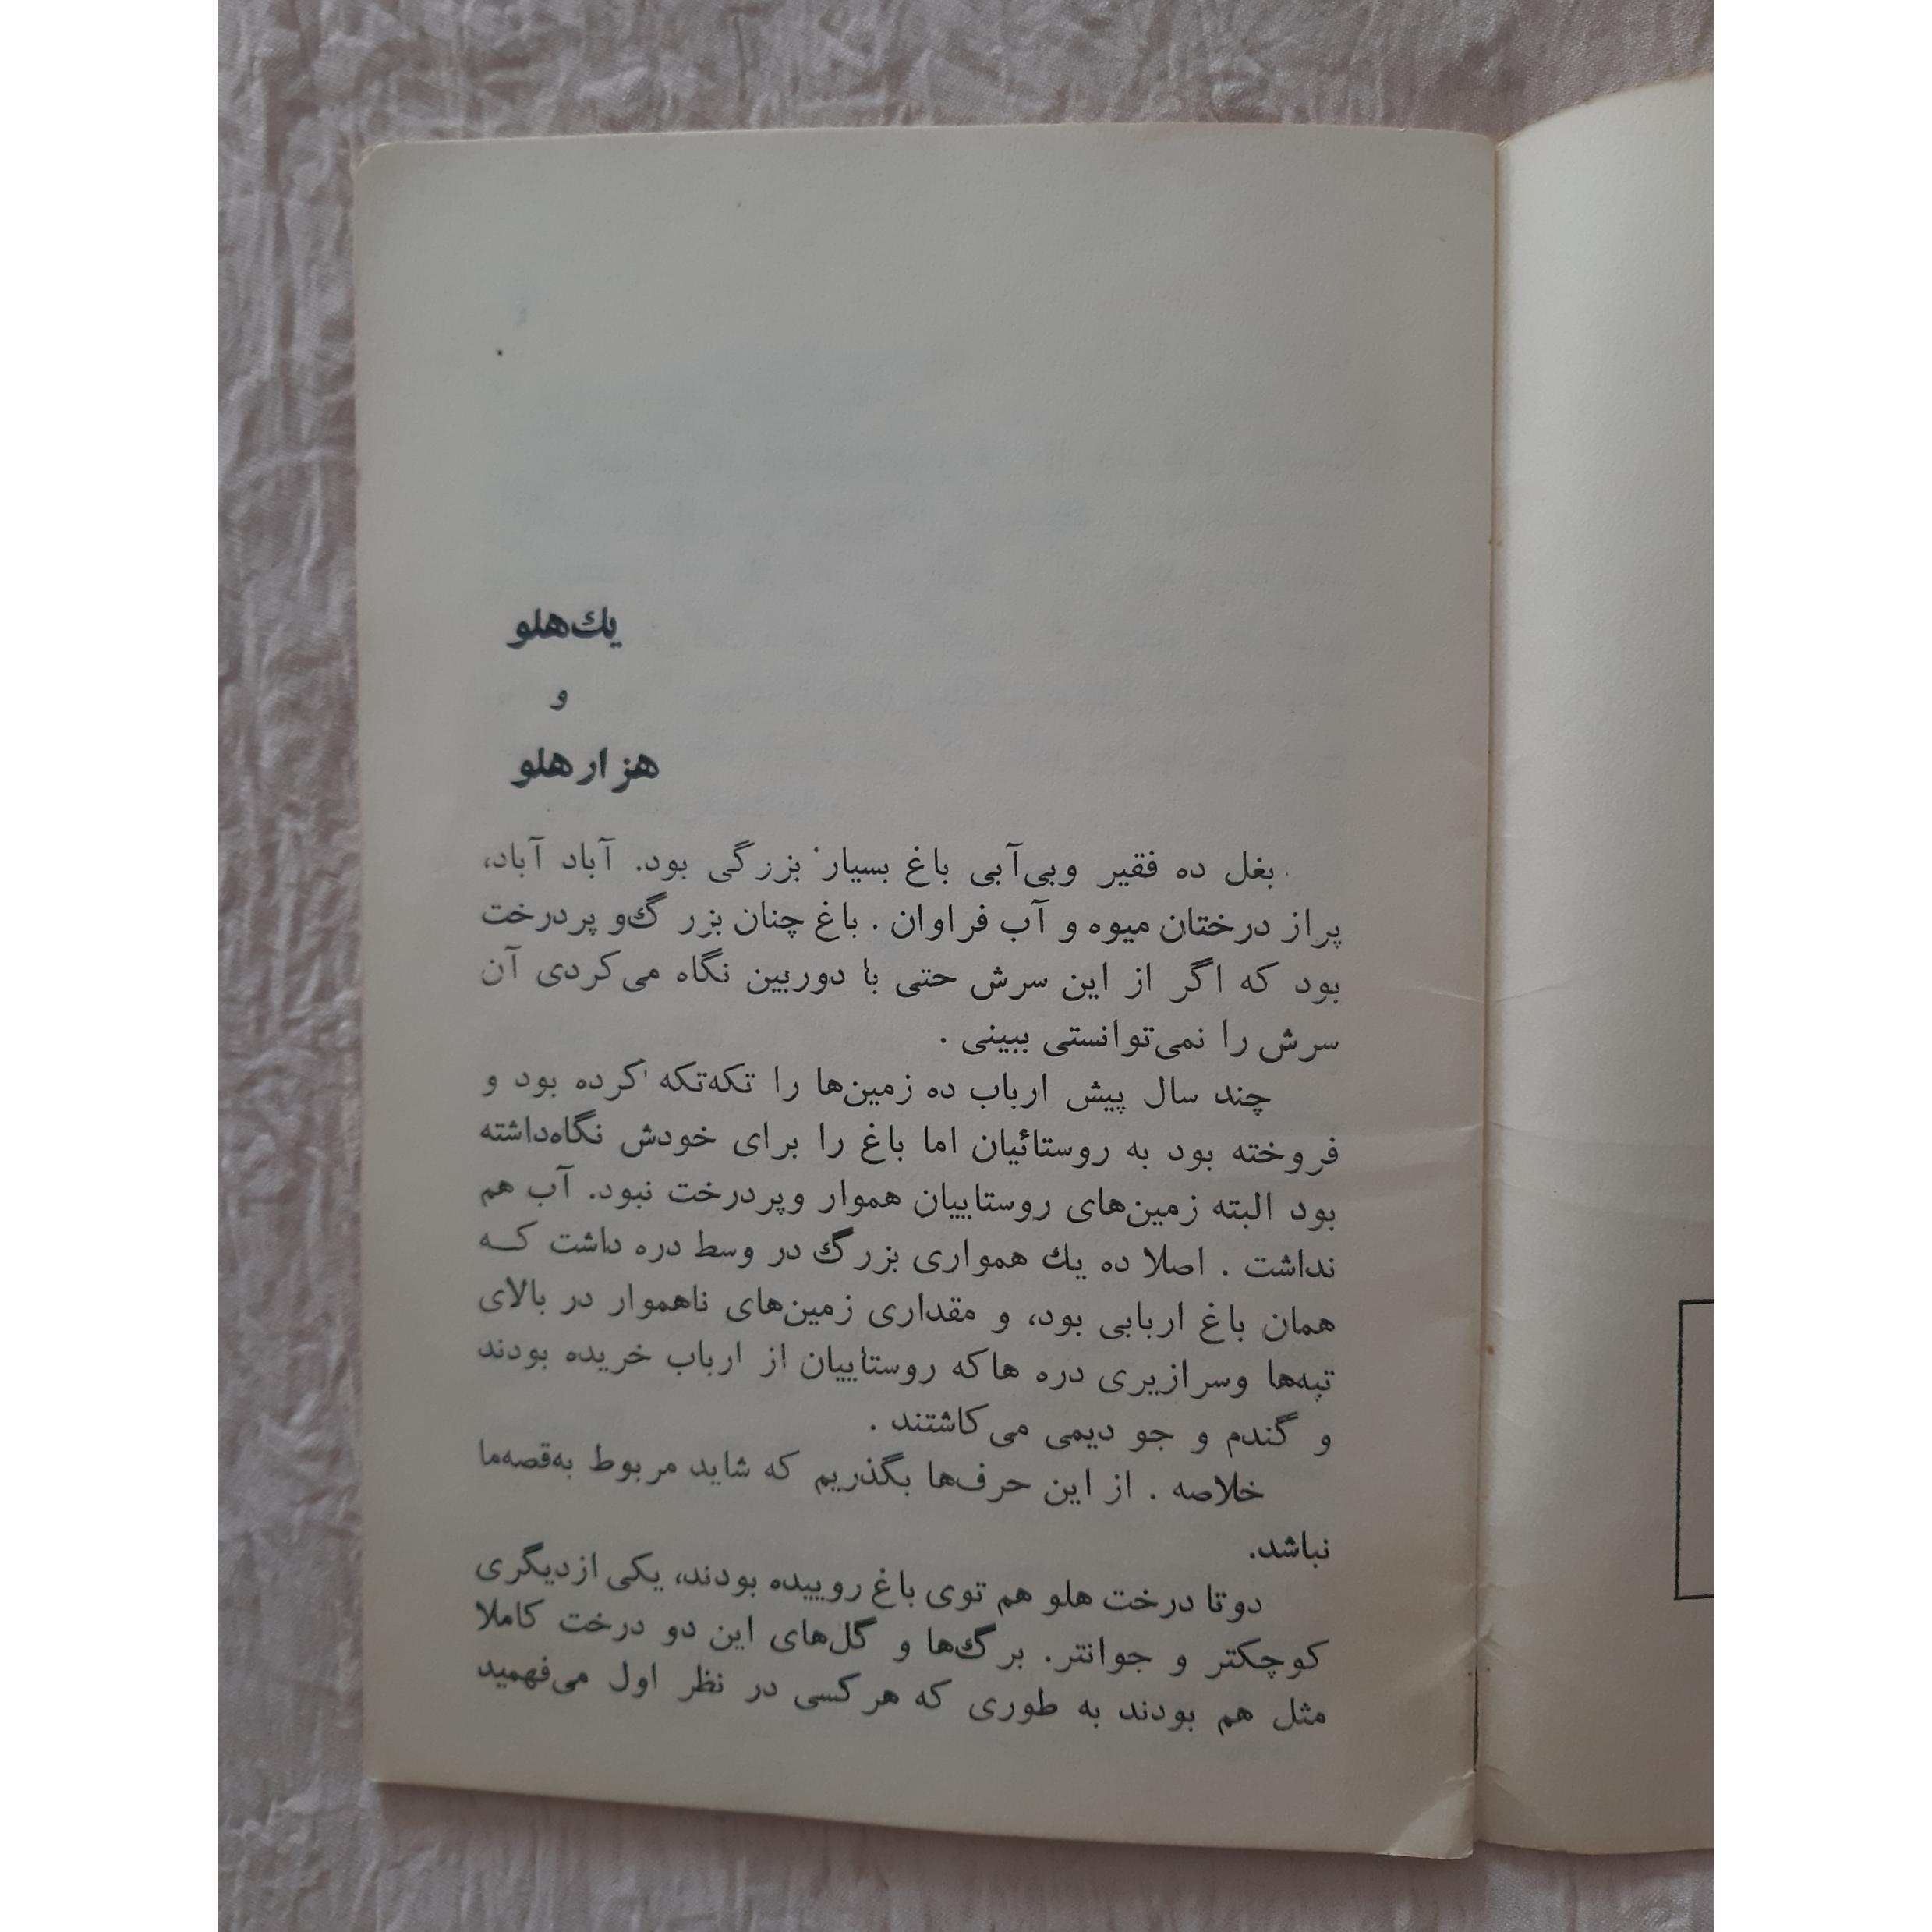 یك‌هلو
و
هزار هلو
بغل ده فقیر وبی‌آبی باغ بسیار بزرگی بود. آباد آباد،
پراز درختان میوه و آب فراوان . باغ چنان بزرگ‌و پردرخت
بود که اگر از این سرش حتی با دوربین نگاه می‌کردی آن
سرش را نمی‌توانستی ببینی .
چند سال پیش ارباب ده زمین‌ها را تکه‌تکه کرده بود و
فروخته بود به روستائیان اما باغ را برای خودش نگاه‌داشته
بود البته زمین‌های روستاییان هموار وپردرخت نبود. آب هم
نداشت . اصلا ده یك همواری بزرگ در وسط دره داشت کـه
همان باغ اربابی بود، و مقداری زمین‌های ناهموار در بالای
تپه‌ها وسرازیری دره هاکه روستاییان از ارباب خریده بودند
و گندم و جو دیمی می‌کاشتند .
خلاصه . از این حرف‌ها بگذریم که شاید مربوط به‌قصه‌ما
نباشد.
دوتا درخت هلو هم توی باغ روییده بودند، یکی ازدیگری
کوچکتر و جوانتر. برگ‌ها و گل‌های این دو درخت کاملا
مثل هم بودند به طوری که هرکسی در نظر اول می‌فهمید